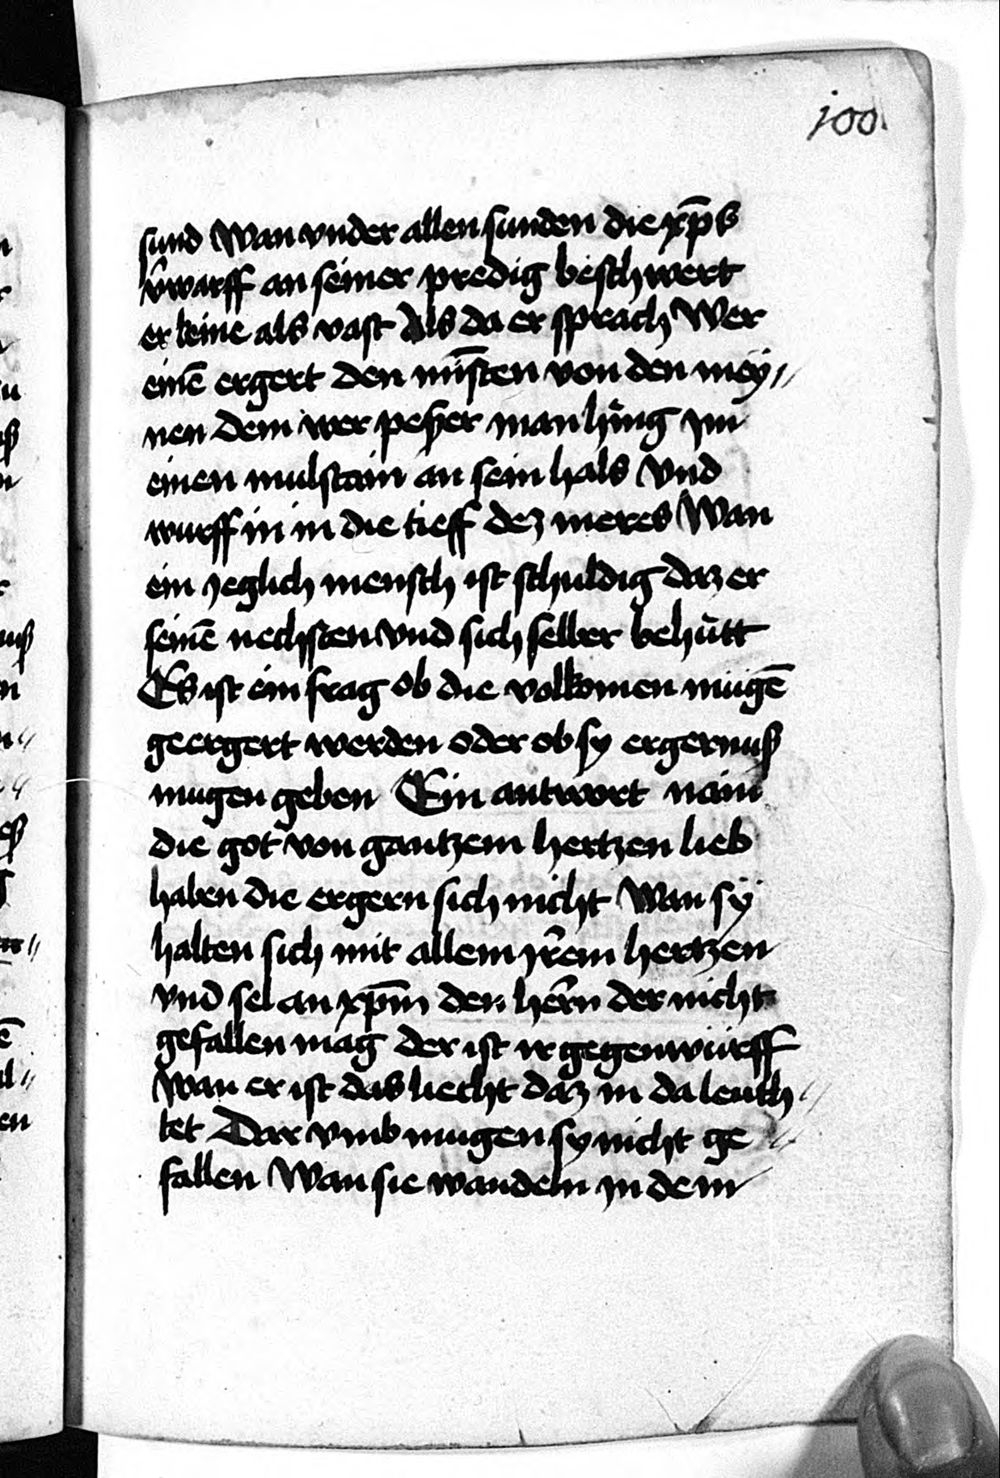 100
sund Wan vnder allen sunden die xp̄s
v̂warff an seiner predig beschwert
er keine als vast Als da er sprach Wer
einē ergert den mīsten von den mey〃
nen dem wer peßer man hing ym
einen mulstain an sein hals Vnd
wurff in in die tieff dez meres Wan
ein yeglich mensch ist schuldig daz er
seinē nechsten vnd sich selber behůtt
Es ist ein frag ob die volkomen mügē
geergert werden oder ob sy ergernuß
mugen geben Ein antwort nain
die got von gantzem hertzen lieb
haben die ergern sich nicht Wan sÿ
halten sich mit allem yr̄em hertzen
vnd sel an xp̄m den her̄n der nicht
gefallen mag der ist ir gegenwürff
Wan er ist das liecht daz in da leuch〃
tet Dar vmb mugen sy nicht ge〃
fallen Wan sie wandeln in dem